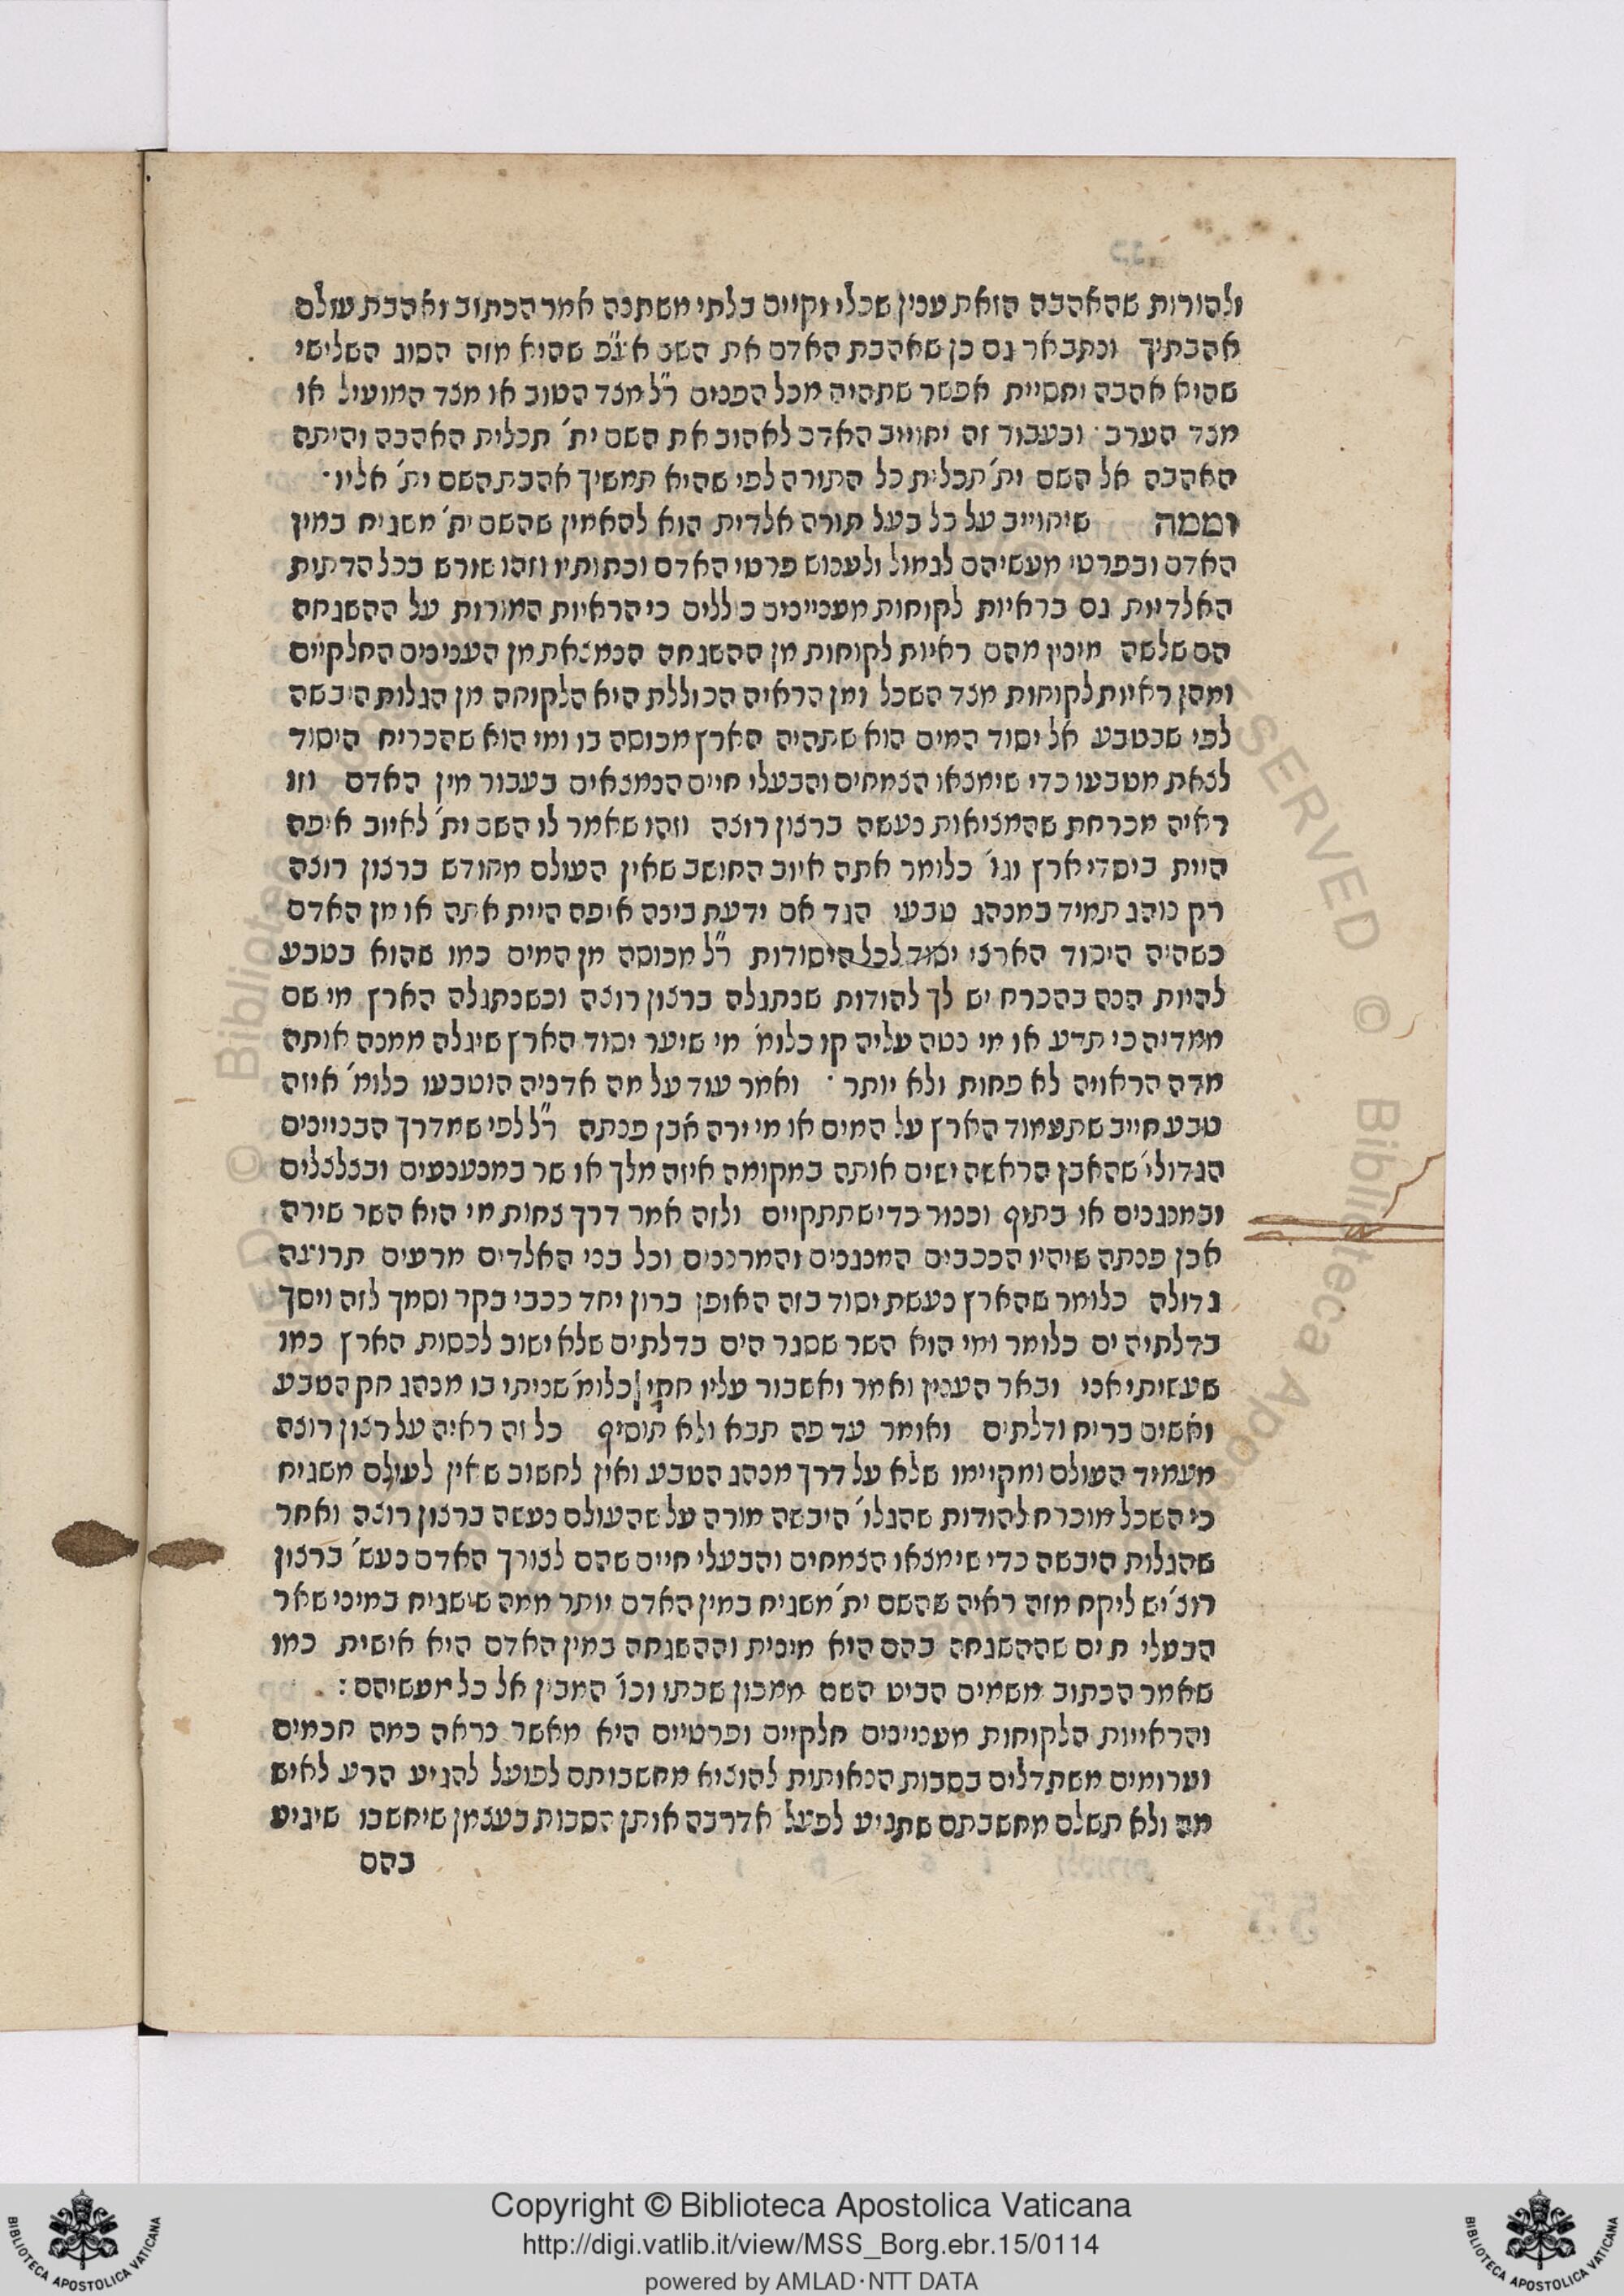 ולהורות שהאהבה הזאת ענין שכלי וקיים בלתי משתנה אמר הכתוב ואהבת עולם
אהבתיך ונתבאר גם כן שאהבת האדם את השם אע״פ שהיא מזה הסוג השלישי
שהיא אהבה יחסיית אפשר שתהיה מכל הפנים ר״ל מצד הטוב או מצד המועיל או
מצד הערב· ובעבור זה יחוייב האדם לאהוב את השם ית׳ תכלית האהבה והיתה
האהבה אל השם ית׳ תכלית כל התורה לפי שהיא תמשיך אהבת השם ית׳ אליו·
וממה שיחוייב על כל בעל תורה אלדית הוא להאמין שהשם ית׳ משגיח במין
האדם ובפרטי מעשיהם לגמול ולענוש פרטי האדם וכתותיו וזהו שורש בכל הדתות
האלדיות גם בראיות לקוחות מעניינים כוללים כי הראיות המורות על ההשגחה
הם שלשה מינין מהם ראיות לקוחות מן ההשגחה הנמצאת מן הענינים החלקיים
ומהן ראיות לקוחות מצד השכל ומן הראיה הכוללת היא הלקוחה מן הגלות היבשה
לפי שבטבע אל יסוד המים הוא שתהיה הארץ מכוסה בו ומי הוא שהכריח היסוד
לצאת מטבעו כדי שימצאו הצמחים והבעלי חיים הנמצאים בעבור מין האדם וזו
ראיה מכרחת שהמציאות נעשה ברצון רוצה וזהו שאמר לו השם ית׳ לאיוב איפה
היית ביסדי ארץ וגו׳ כלומר אתה איוב החושב שאין העולם מחודש ברצון רוצה
רק נוהג תמיד במנהג טבעי הגד אם ידעת בינה איפה היית אתה או מן האדם
כשהיה היסוד הארצי יסוד לכל היסודות ר״ל מכוסה מן המים כמו שהוא בטבע
להיות הנה בהכרח יש לך להודות שנתגלה ברצון רוצה וכשנתגלה הארץ מי שם
ממדיה כי תדע או מי נטה עליה קו כלומ׳ מי שיער יסוד הארץ שיגלה ממנה אותה
מדה הראויה לא פחות ולא יותר· ואמר עוד על מה אדניה הוטבעו כלומ׳ איזה
טבע חייב שתעמוד הארץ על המים או מי ירה אבן פנתה ר״ל לפי שמדרך הבניינים
הגדולי׳ שהאבן הראשה ישים אותה במקומה איזה מלך או שר במנענעים ובצלצלים
ובמנגנים או בתוף וכנור כדי שתתקיים ולזה אמר דרך צחות מי הוא השר שירה
אבן פנתה שיהיו הככבים המנגנים והמרננים וכל בני האלדים מרעים תרועה
גדולה כלומר שהארץ נעשת יסוד בזה האופן ברון יחד ככבי בקר וסמך לזה ויסך
בדלתיה ים כלומר ומי הוא השר שסגר הים בדלתים שלא ישוב לכסות הארץ כמו
שעשיתי אני ובאר הענין ואמר ואשבור עליו חקי כלומ׳ שניתי בו מנהג חק הטבע
ואשים בריח ודלתים ואומר עד פה תבא ולא תוסיף כל זה ראיה על רצון רוצה
מעמיד העולם ומקיימו שלא על דרך מנהג הטבע ואין לחשוב שאין לעולם משגיח
כי השכל מוכרח להודות שהגלו׳ היבשה מורה על שהעולם נעשה ברצון רוצה ואחר
שהגלות היבשה כדי שימצאו הצמחים והבעלי חיים שהם לצורך האדם נעש׳ ברצון
רוצ׳ יש ליקח מזה ראיה שהשם ית׳ משגיח במין האדם יותר ממה שישגיח במיני שאר
הבעלי חיים שההשגחה בהם היא מינית וההשגחה במין האדם היא אישית כמו
שאמר הכתוב משמים הביט השם ממכון שבתו וכו׳ המבין אל כל מעשיהם:
והראיות הלקוחות מעניינים חלקיים ופרטיים היא מאשר נראה כמה חכמים
וערומים משתדלים בסבות הנאותות להוציא מחשבותם לפועל להגיע הרע לאיש
מה ולא תשלם מחשבתם שתגיע לפעל אדרבה אותן הסבות בעצמן שיחשבו שיגיע
בהם
Copyright © Biblioteca Apostolica Vaticana
http://digi.vatlib.it/view/MSS_Borg.ebr.15/0114
powered by AMLAD·NTT DATA